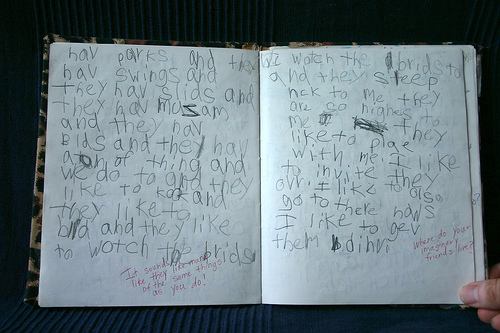 hav parks and they
hav swings and
they hav slids and
they hav musam
and they hav
Bids and they hav
a ton of thing and
we do to and they
like to kok and
they like to
bid and they like
to wotch the brids
It sounds like many
like they
of the same things
as you do!
Wi wotch the brids to
and they sleep
nck to me they
are so nighes to
me they
like to plae
with me. I like
to invite they
ovr. I like to also
go to there haws
I like to gev
them dinr.
Where do your
imaginary
friends live?